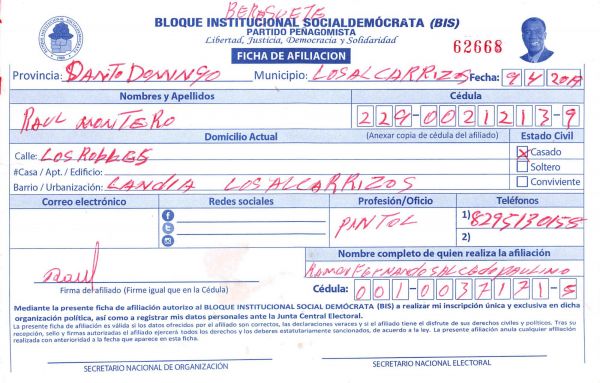 BERAGUETE
BLOQUE INSTITUCIONAL SOCIALDEMÓCRATA (BIS)
PARTIDO PEÑAGOMISTA
Libertad, Justicia, Democracia y Solidaridad
62668
FICHA DE AFILIACION
Provincia: DANTO DOMINGO Municipio: LOS ALCARRIZOS Fecha: 9/4/2019
Nombres y Apellidos Cédula
RAUL MONTERO 229-0021213-9
Domicilio Actual (Anexar copia de cédula del afiliado) Estado Civil
Calle: LOS ROBLES X Casado
#Casa / Apt. / Edificio: Soltero
Barrio / Urbanización: LANDIA LOS ALCARRIZOS Conviviente
Correo electrónico Redes sociales Profesión/Oficio Teléfonos
PINTOL 1) 8295130155
2)
Nombre completo de quien realiza la afiliación
Raul RAMON FERNANDO SALCEDO PAULINO
Firma de afiliado (Firme igual que en la Cédula) Cédula: 001-0037171-5
Mediante la presente ficha de afiliación autorizo al BLOQUE INSTITUCIONAL SOCIAL DEMÓCRATA (BIS) a realizar mi inscripción única y exclusiva en dicha
organización política, así como a registrar mis datos personales ante la Junta Central Electoral.
La presente ficha de afiliación es válida si los datos ofrecidos por el afiliado son correctos, las declaraciones veraces y si el afiliado tiene el disfrute de sus derechos civiles y políticos. Tras su
recepción, sello y firmas autorizadas el afiliado ejercerá todos los derechos y los deberes estatutariamente sancionados, de acuerdo a la ley. La presente afiliación anula cualquier afiliación
realizada con anterioridad a la fecha que aparece en esta ficha.
SECRETARIO NACIONAL DE ORGANIZACIÓN SECRETARIO NACIONAL ELECTORAL